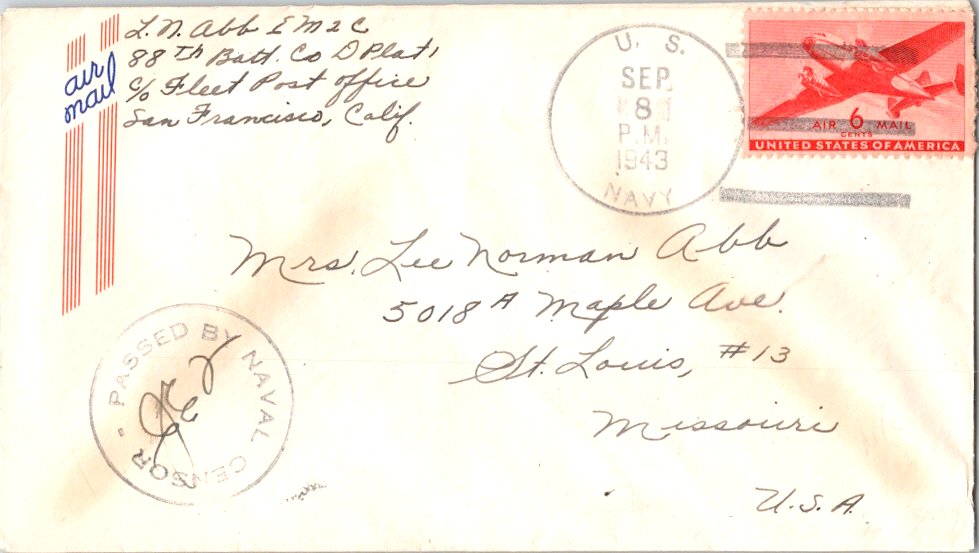 L. N. Abb EM2C
88th Batt. Co D Plat 1
c/o Fleet Post Office
San Francisco, Calif.
air
mail
U. S.
SEP
8
P.M.
1943
NAVY
AIR 6 MAIL
CENTS
UNITED STATES OF AMERICA
Mrs. Lee Norman Abb
5018A Maple Ave.
St. Louis, #13
Missouri
U.S.A.
PASSED BY NAVAL CENSOR